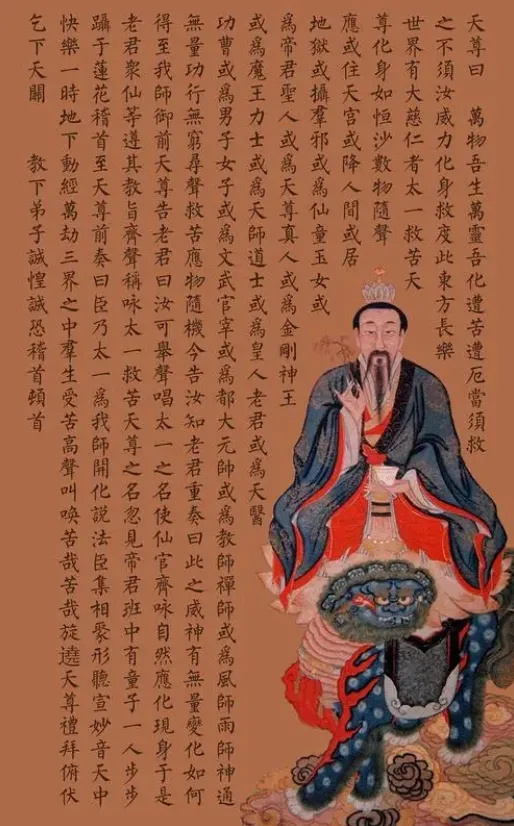 天尊曰　萬物吾生萬靈吾化遭苦遭厄當須救
之不須汝威力化身救度此東方長樂
世界有大慈仁者太一救苦天
尊化身如恒沙數物隨聲
應或住天宮或降人間或居
地獄或攝羣邪或爲仙童玉女或
爲帝君聖人或爲天尊真人或爲金剛神王
或爲魔王力士或爲天師道士或爲皇人老君或爲天醫
功曹或爲男子女子或爲文武官宰或爲都大元帥或爲教師禪師或爲風師雨師神通
無量功行無窮尋聲救苦應物隨機今告汝知老君重奏曰此之威神有無量變化如何
得至我師御前天尊告老君曰汝可舉聲唱太一之名使仙官齊咏自然應化現身于是
老君衆仙等遵其教旨齊聲稱咏太一救苦天尊之名忽見帝君班中有童子一人步步
躡于蓮花稽首至天尊前奏曰臣乃太一爲我師開化説法臣集相聚形聽宣妙音天中
快樂一時地下動經萬劫三界之中羣生受苦高聲叫喚苦哉苦哉旋遶天尊禮拜俯伏
乞下天關　教下弟子誠惶誠恐稽首頓首